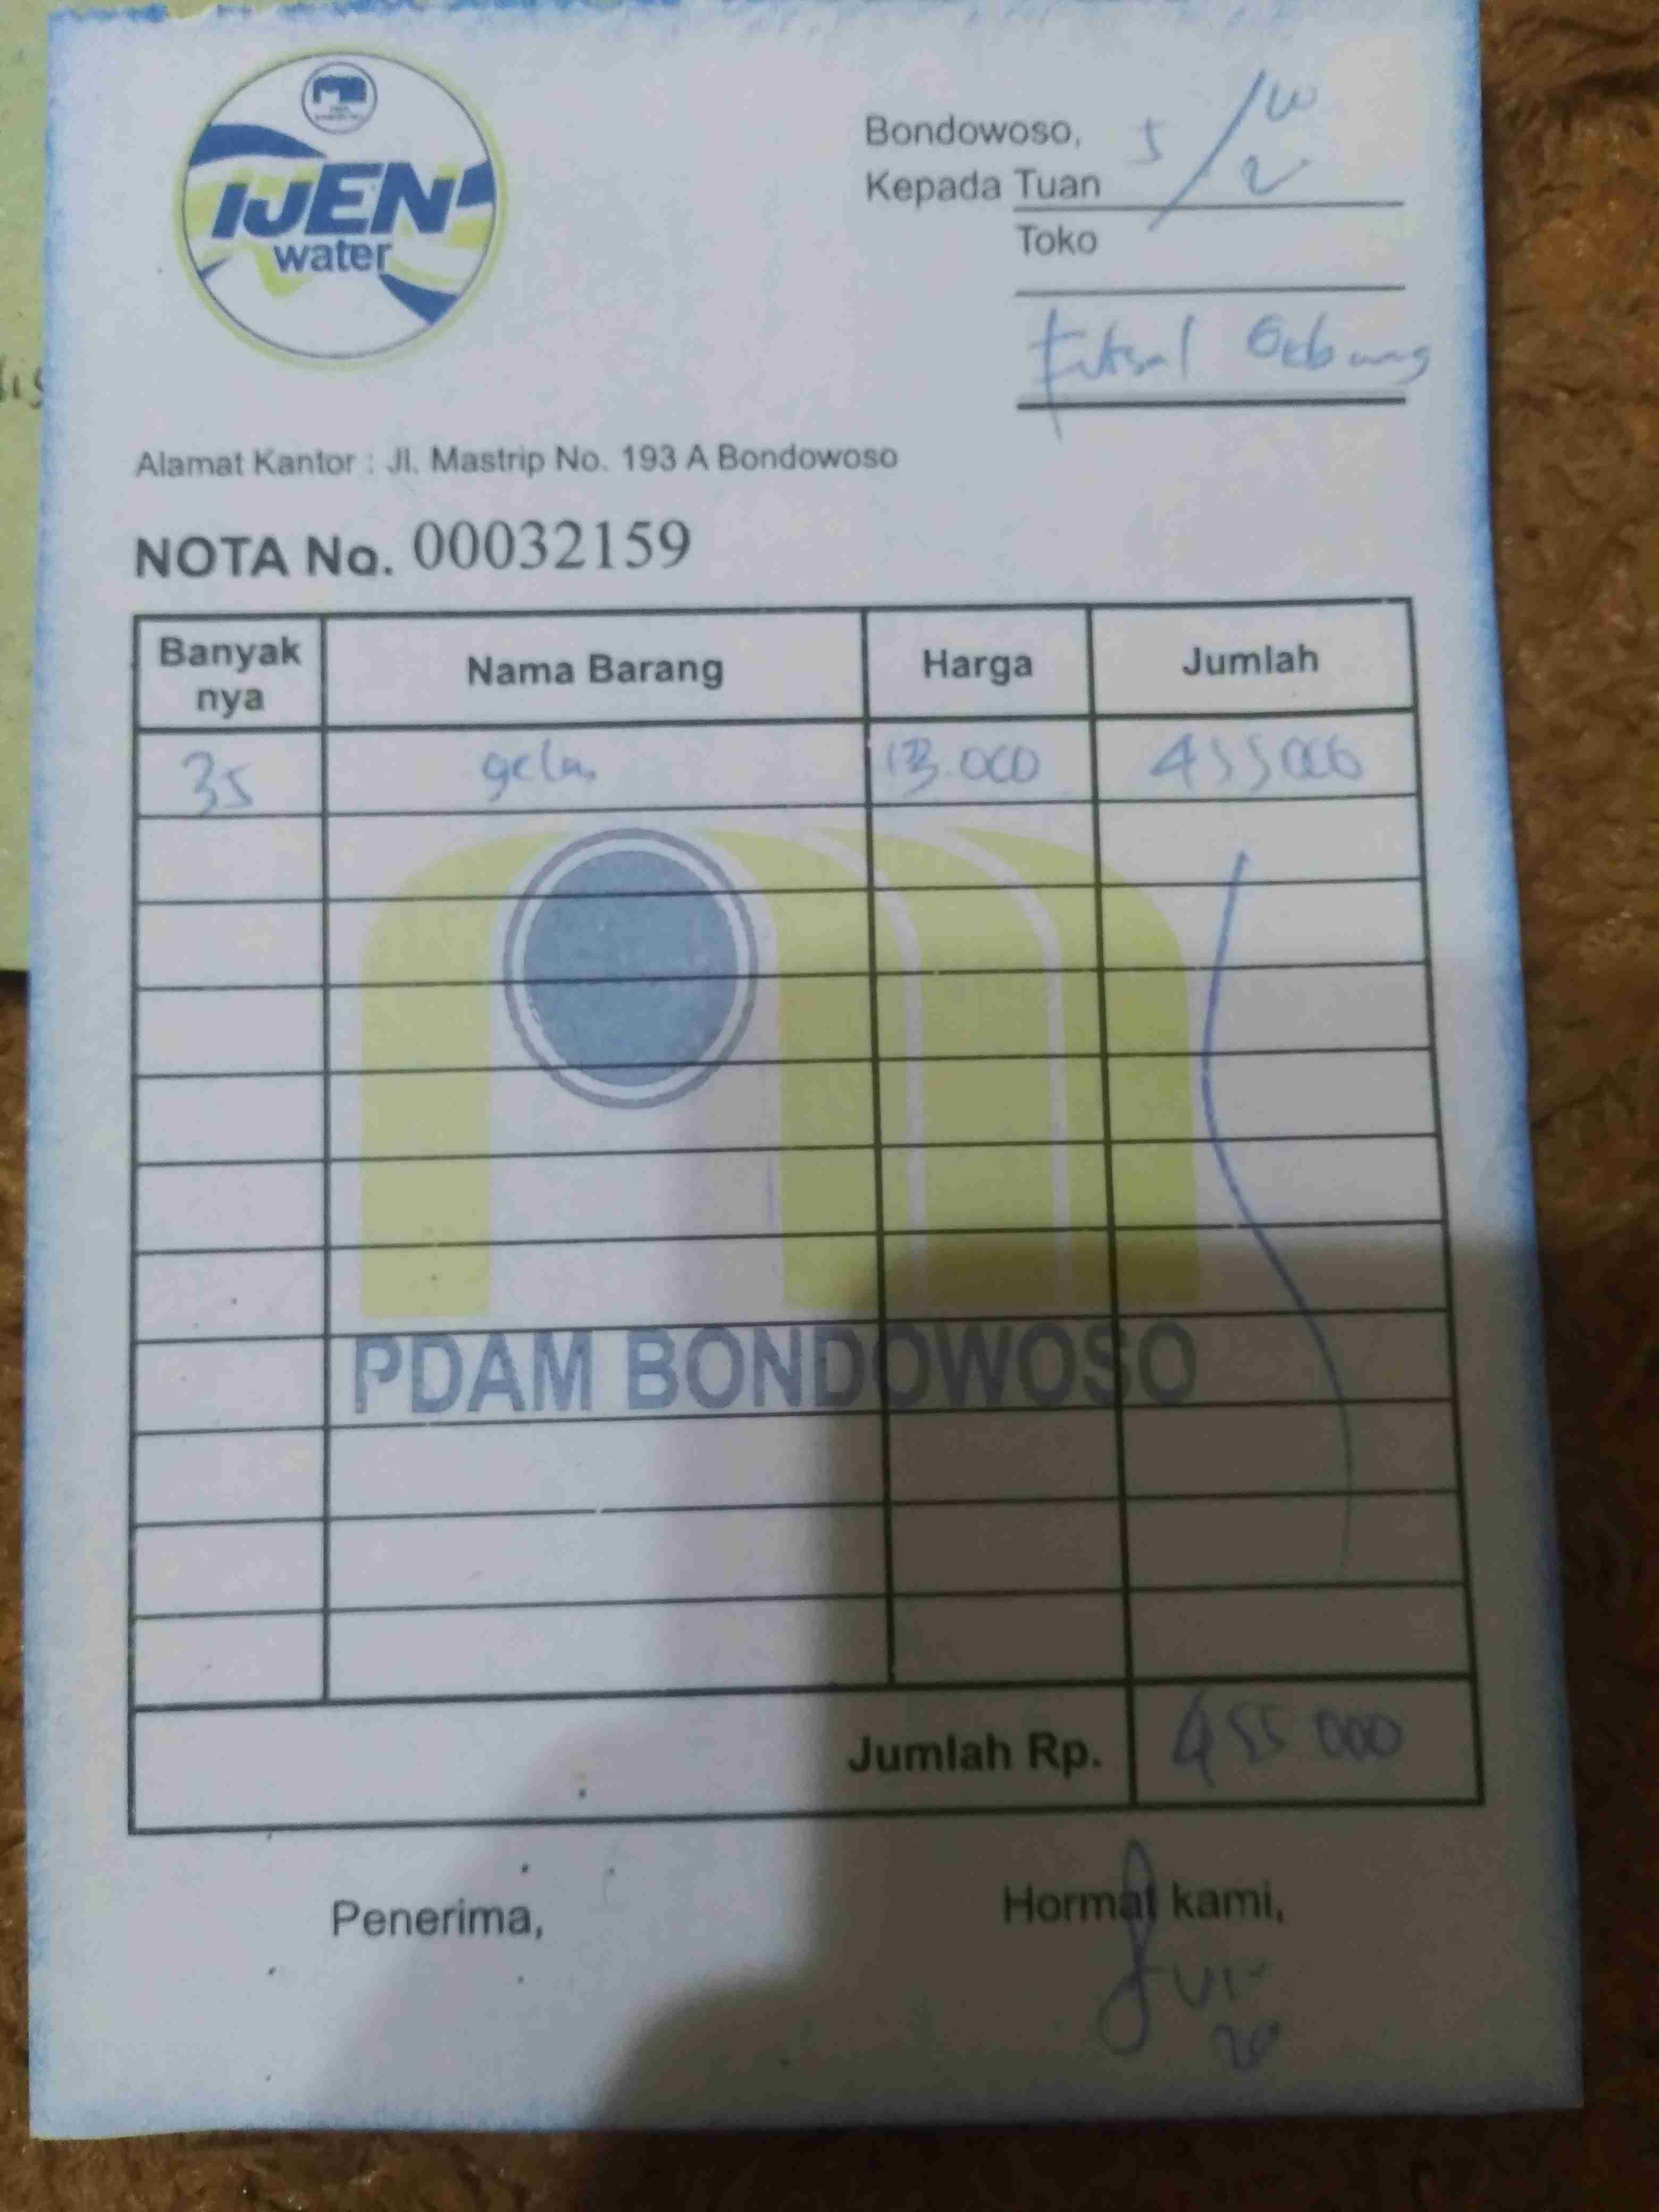 IJEN
water
Bondowoso, 5/10
Kepada Tuan
Toko
Futsal Gebang
Alamat Kantor : Jl. Mastrip No. 193 A Bondowoso
NOTA No. 00032159
Banyak nya Nama Barang Harga Jumlah
35 gelas 13.000 455000
PDAM BONDOWOSO
Jumlah Rp. 455 000
Penerima, Hormat kami,